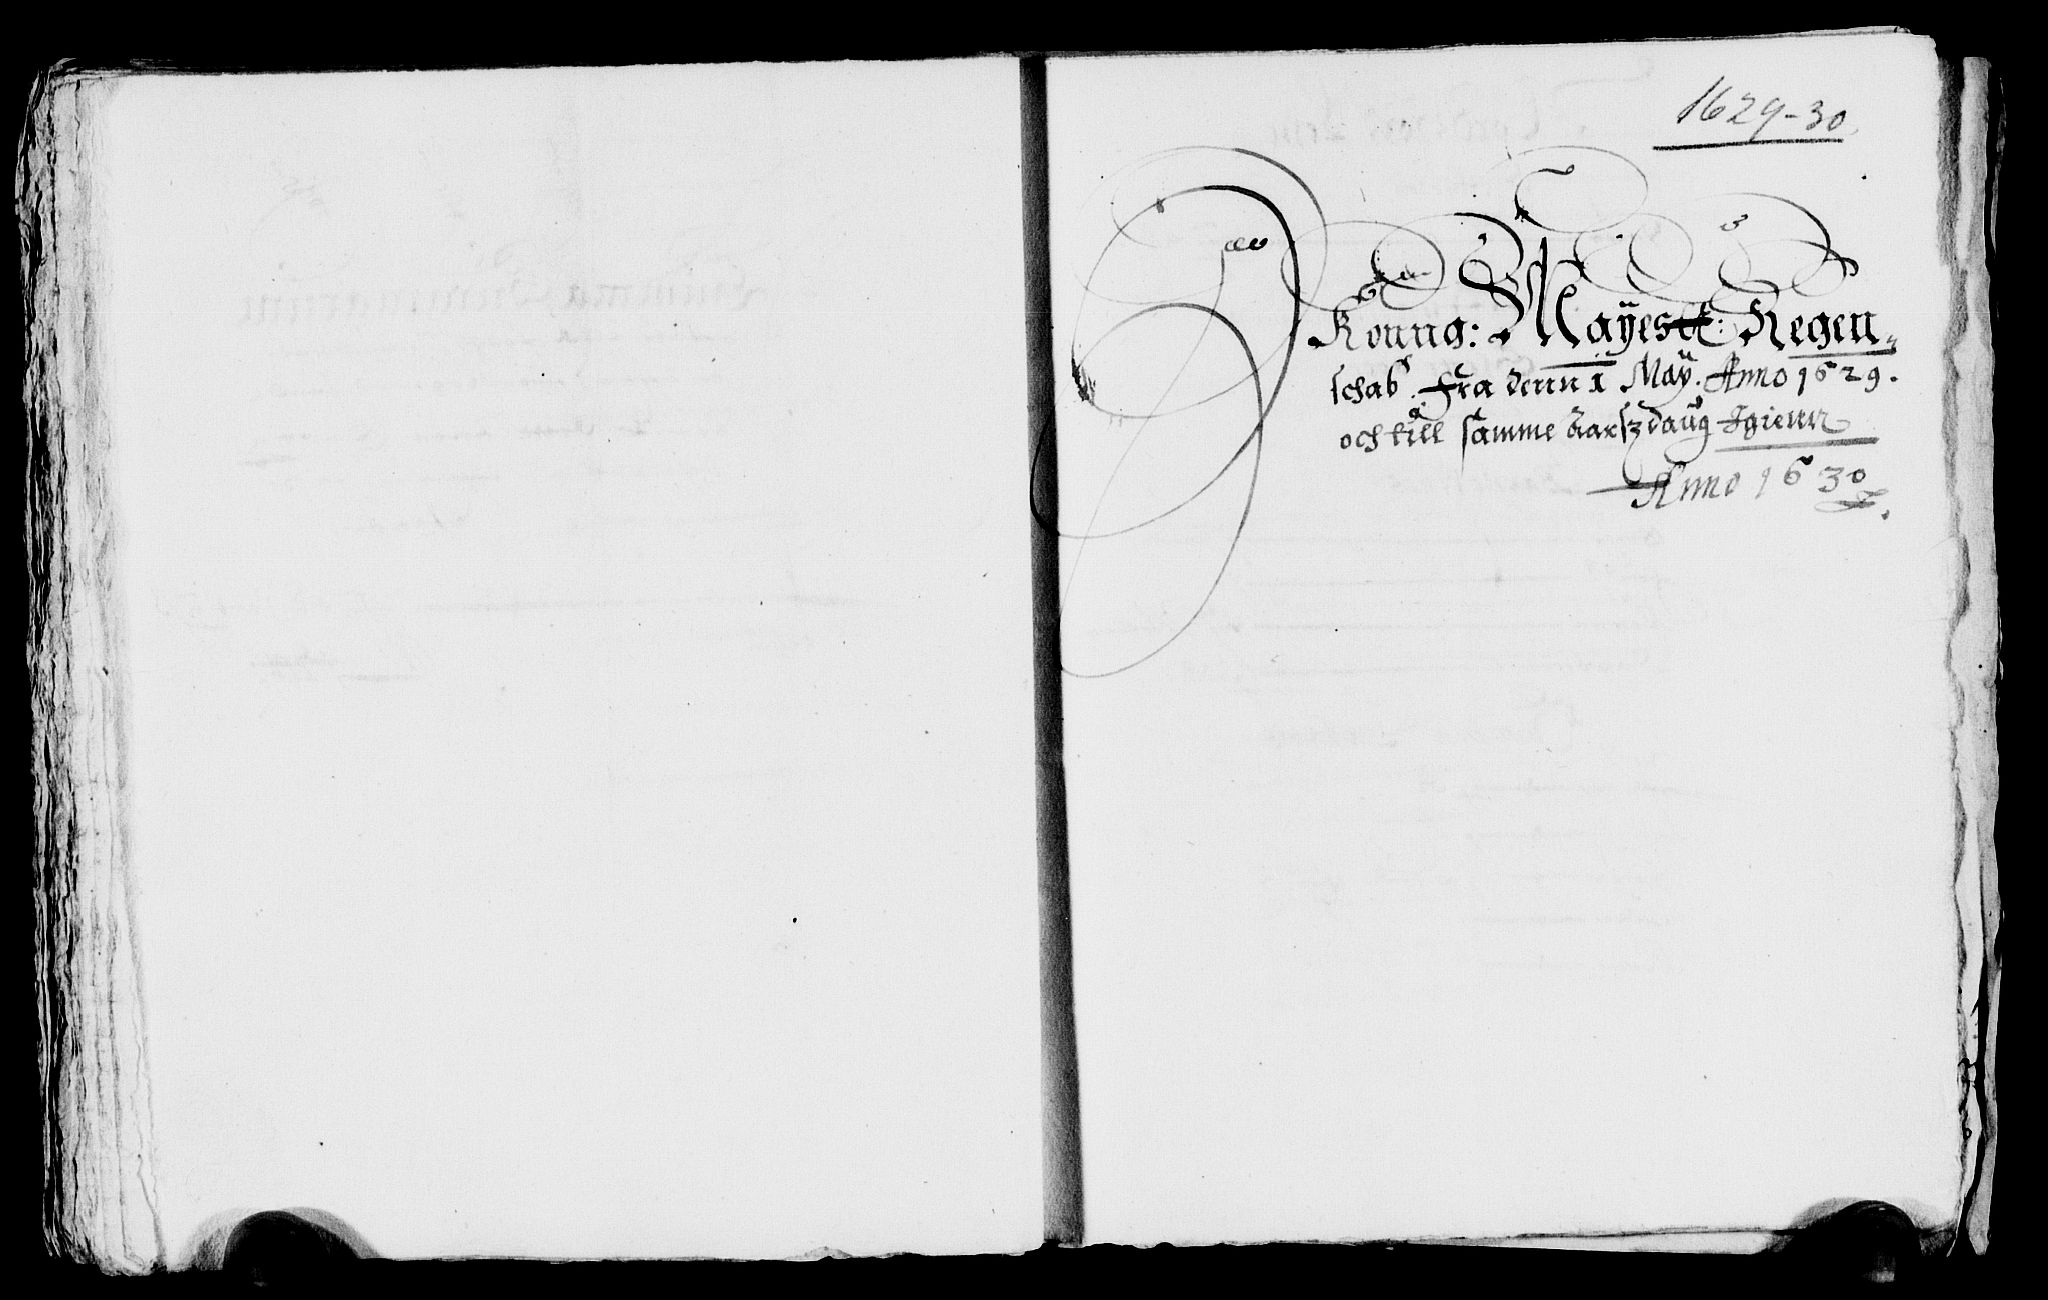 1629-30
Konng: Mayestt: Regen-
schab. Fra denn 1 May. Anno 1629.
och till samme Aarsz daug Igienn
Anno 1630